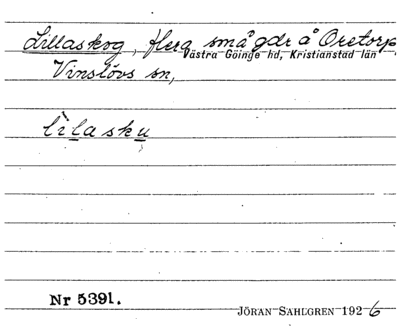 Lillaskog, flera små gdr å Oretorp,
Västra Göinge hd, Kristianstad län
Vinslövs sn,
lìlasku
Nr 5391.
JÖRAN SAHLGREN 1926